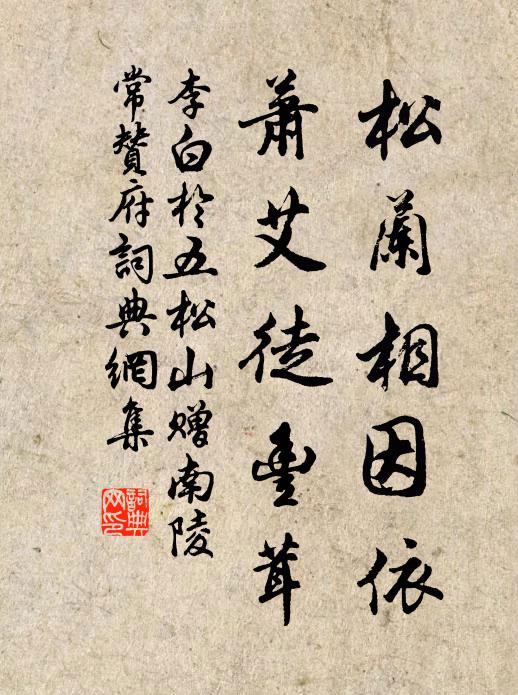 松蘭相因依
蕭艾徒豐茸
李白於五松山贈南陵
常贊府詞典網集
詞典网印